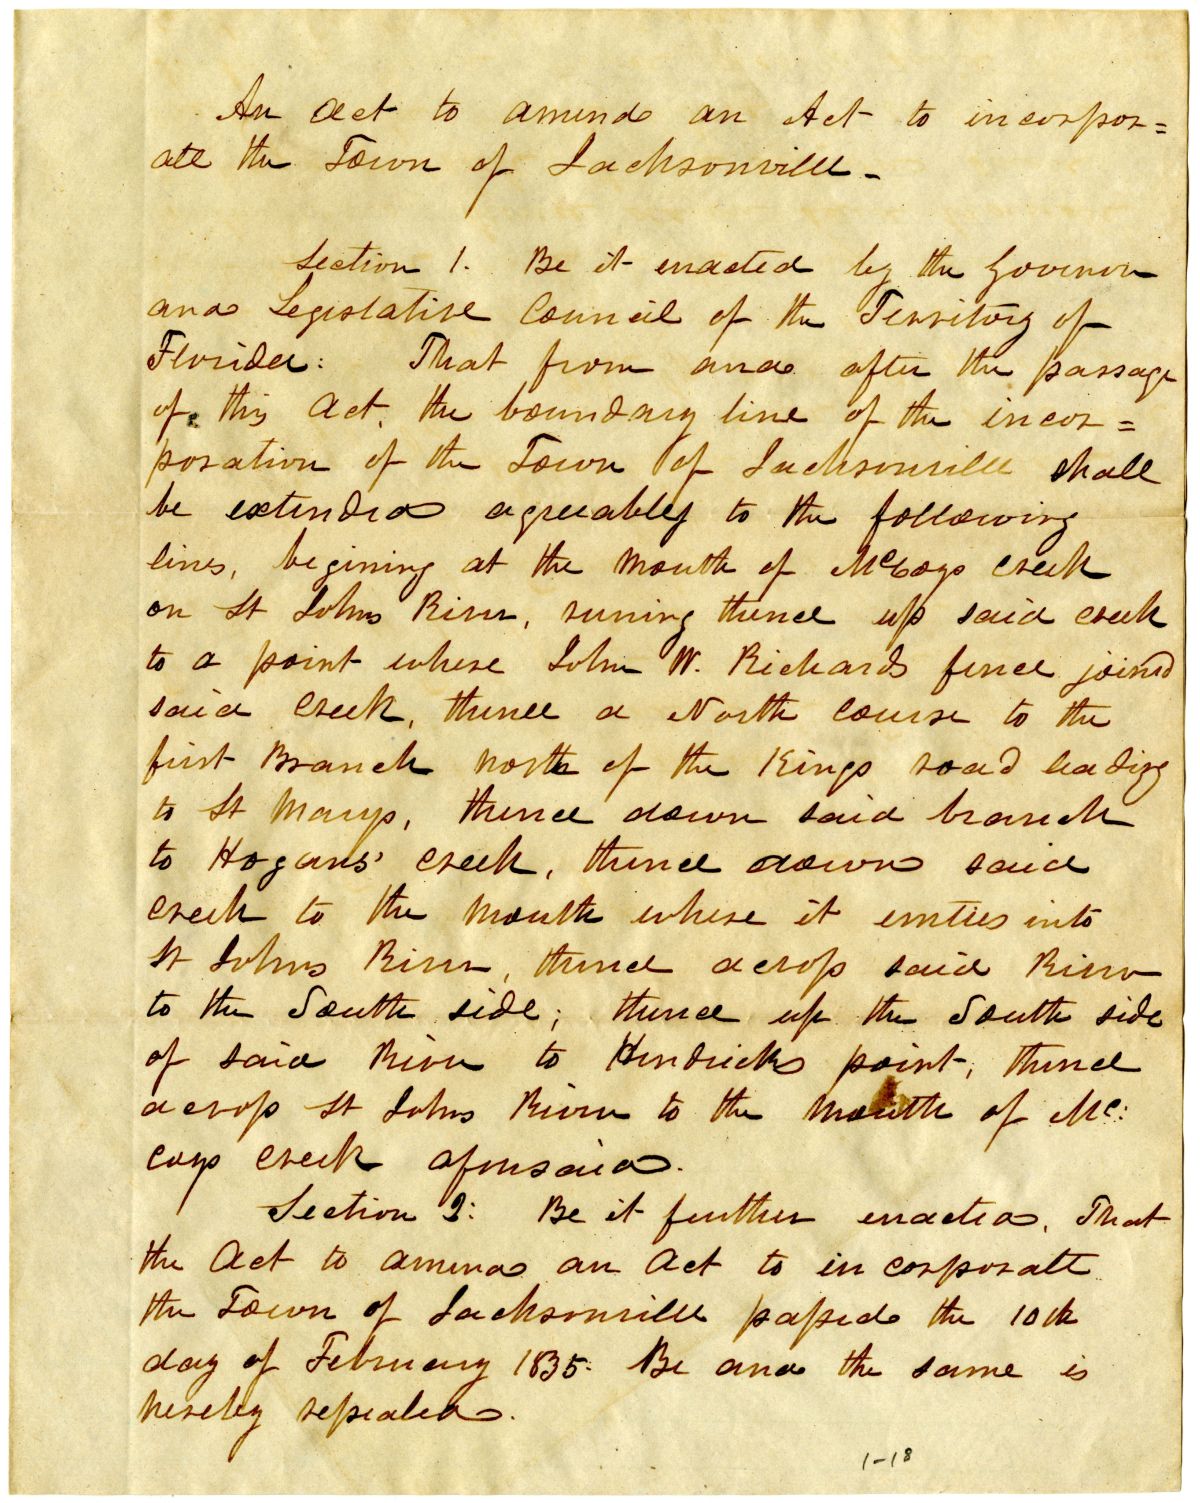 An Act to amend an Act to incorpor=
ate the Town of Jacksonville.-
Section 1. Be it enacted by the Governor
and Legislative Council of the Territory of
Florida: That from and after the passage
of this Act, the boundary line of the incor=
poration of the Town of Jacksonville shall
be extended agreeably to the following
lines, begining at the mouth of McCoys Creek
on St Johns River, runing thence up said creek
to a point where John W. Richards fence joined
said Creek, thence a North course to the
first Branch north of the Kings road leading
to St Marys, thence down said branch
to Hogans' Creek, thence down said
creek to the mouth where it emties into
St Johns River, thence across said River
to the South side; thence up the South side
of said River to Hendricks point, thence
across St Johns River to the mouth of Mc:
coys Creek aforesaid.
Section 2: Be it further enacted, That
the Act to amend an Act to incorporate
the Town of Jacksonville passed the 10th
day of February 1835: Be and the same is
hereby repealed.
1-18